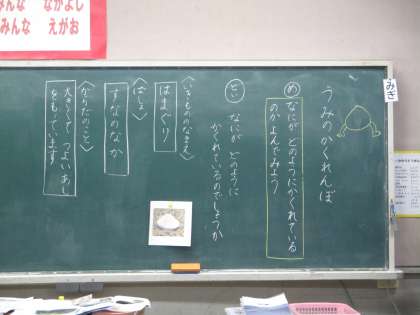 みんな なかよし
みんな えがお
みぎ
うみのかくれんぼ
め なにが どのようにかくれている
のか よんでみよう
と なにが どのように
かくれているのでしょうか
〈いきもののなまえ〉
はまぐり
〈ばしょ〉
すなのなか
〈からだのこと〉
大きくて つよい あし
をもっています